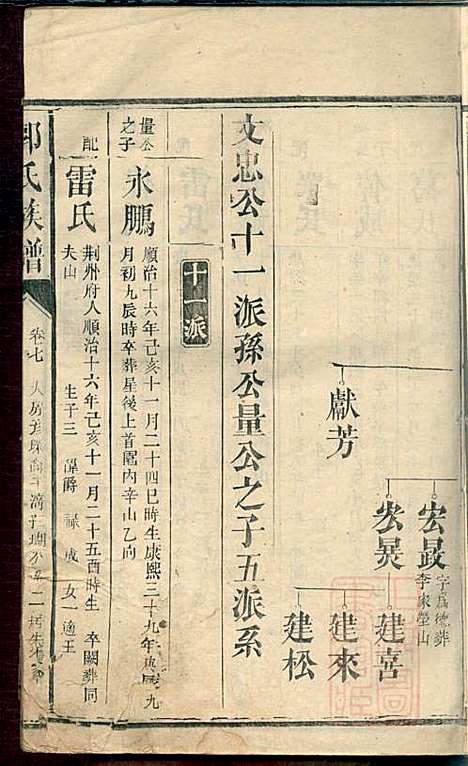 獻芳
宏晸
字為德葬
李家塋山
宏晃
建喜
建來
建松
文忠公十一派孫公量公之子五派系
十一派
量公
之子
永鵬
順治十六年己亥十一月二十四巳時生康熙三十九年庚辰九
月初九辰時卒葬星後上首園內辛山乙向
配
雷氏
荆州府人順治十六年己亥十一月二十五酉時生 卒闕葬同
夫山 生子三 爵 祿 成 女一適王
氏族譜
卷七